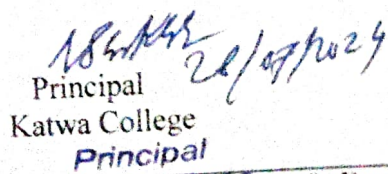 28/07/2024
Principal
Katwa College
Principal